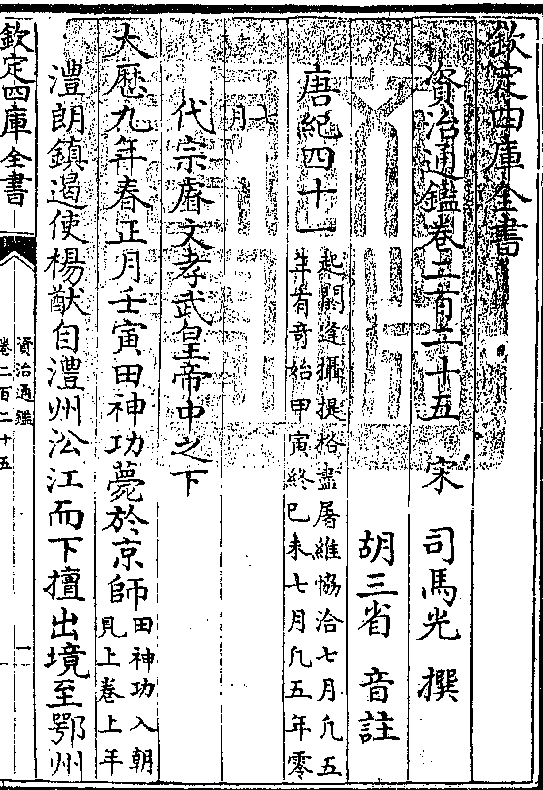 欽定四庫全書
資治通鑑卷二百二十五 宋 司馬光 撰
胡三省 音註
唐紀四十一
起閼逢攝提格盡屠維協洽七月凡五
年有奇始甲寅終巳未七月凡五年零
七月
代宗睿文孝武皇帝中之下
大歷九年春正月壬寅田神功薨於京師
田神功入朝
見上卷上年
澧朗鎮遏使楊猷自澧州㳂江而下擅出境至鄂州
欽定四庫全書
資治通鑑
卷二百二十五
一